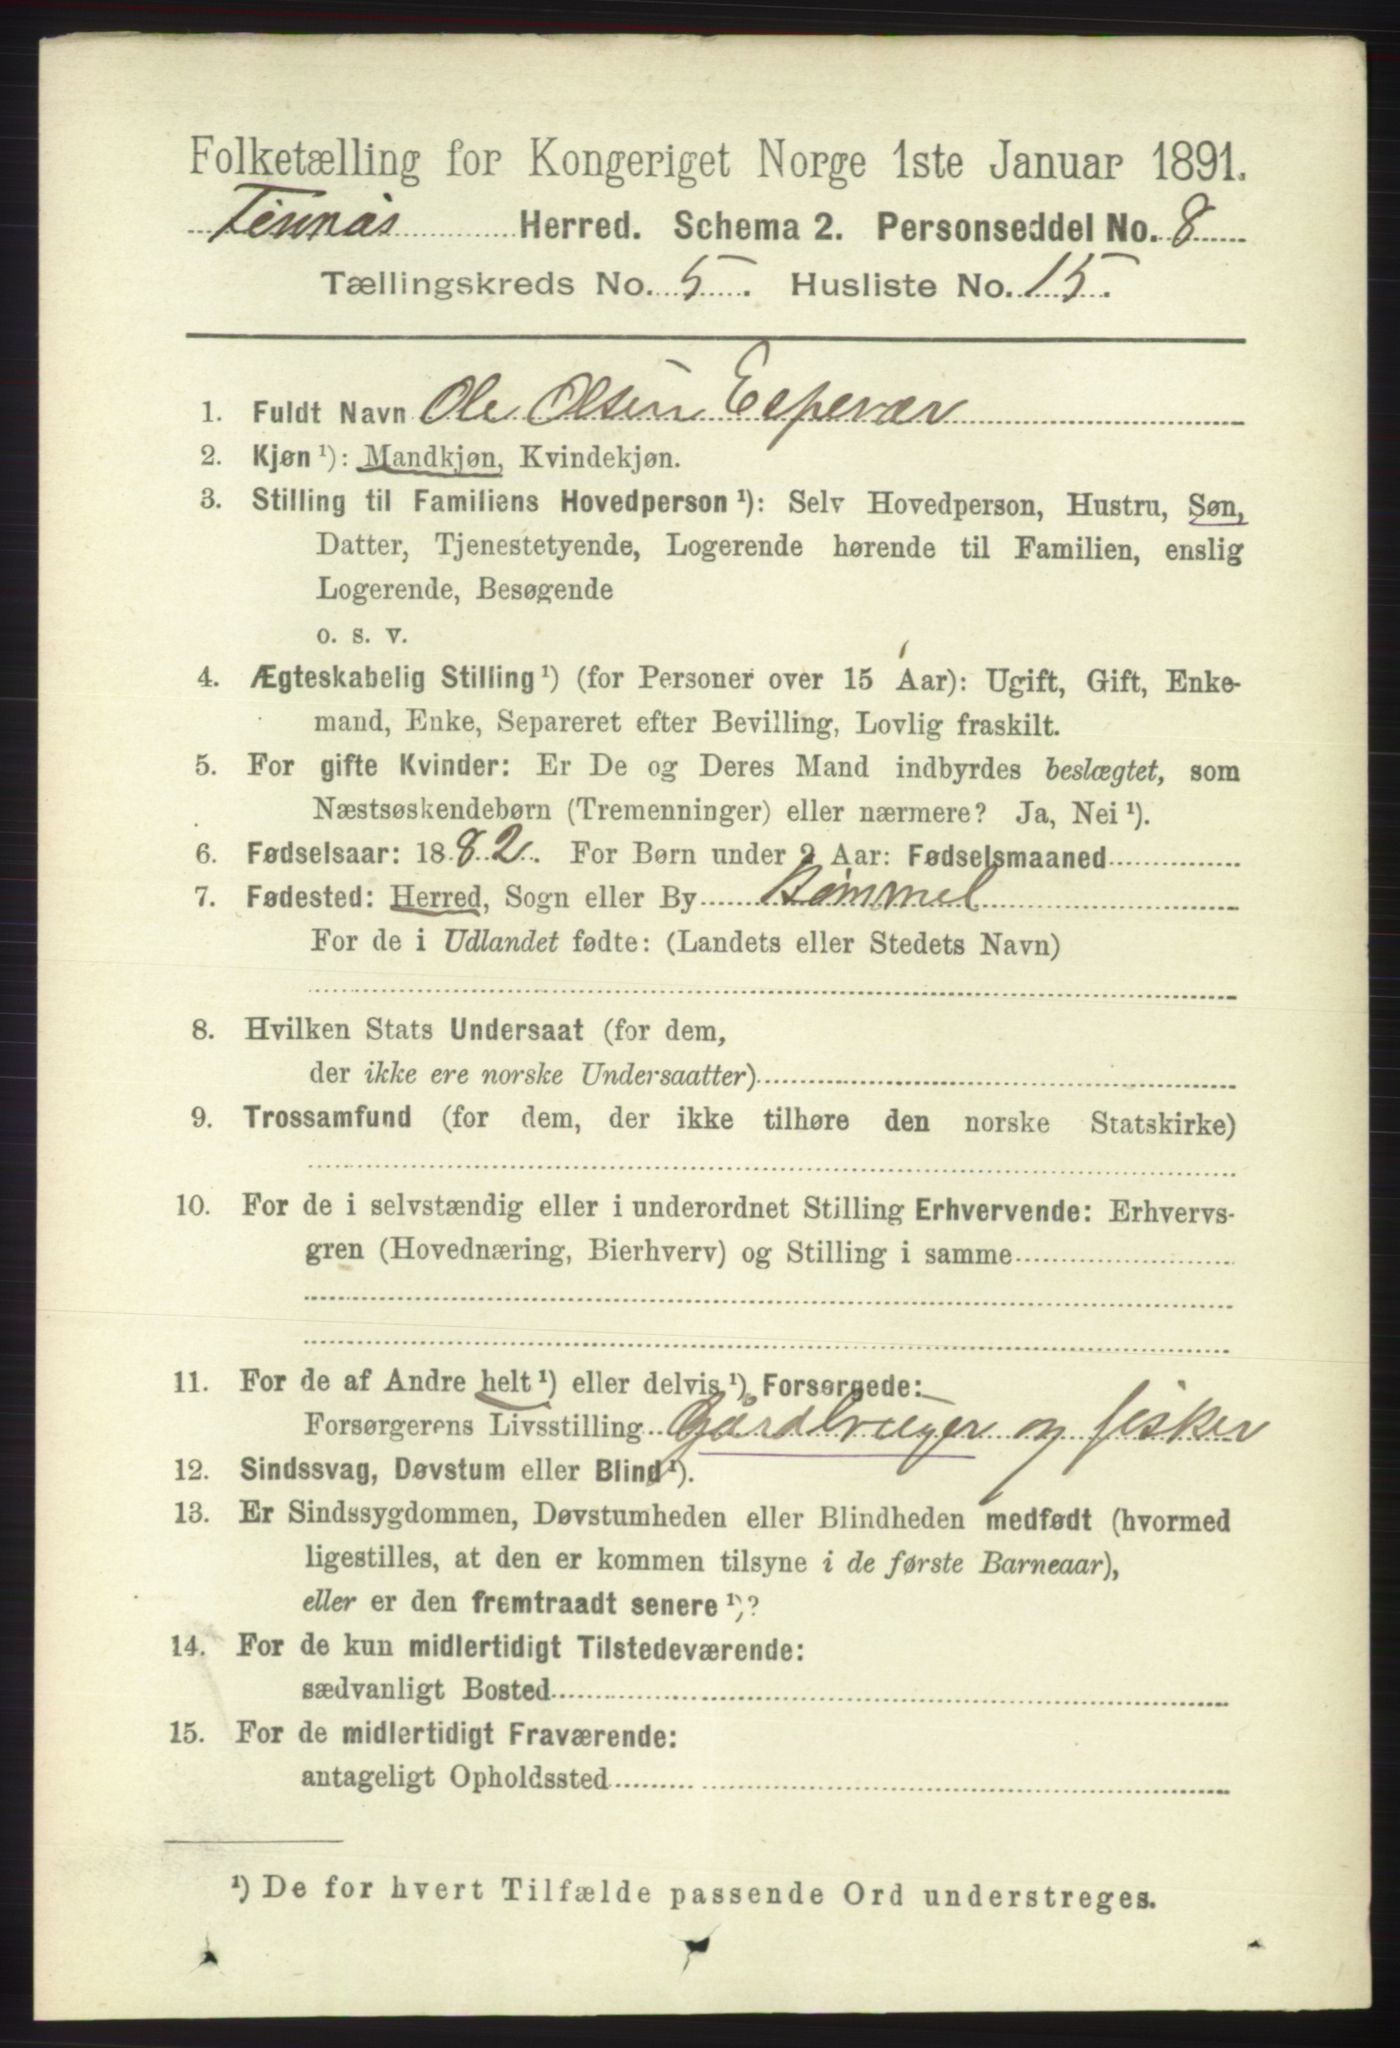 Folketælling for Kongeriget Norge 1ste Januar 1891.
Finnås Herred. Schema 2. Personseddel No. 8
Tællingskreds No. 5. Husliste No. 15.
1. Fuldt Navn Ole Olsen Espevær
2. Kjøn ¹): Mandkjøn, Kvindekjøn.
3. Stilling til Familiens Hovedperson ¹): Selv Hovedperson, Hustru, Søn,
Datter, Tjenestetyende, Logerende hørende til Familien, enslig
Logerende, Besøgende
o. s. v.
4. Ægteskabelig Stilling ¹) (for Personer over 15 Aar): Ugift, Gift, Enke-
mand, Enke, Separeret efter Bevilling, Lovlig fraskilt.
5. For gifte Kvinder: Er De og Deres Mand indbyrdes beslægtet, som
Næstsøskendebørn (Tremenninger) eller nærmere? Ja, Nei ¹).
6. Fødselsaar: 1882. For Børn under 2 Aar: Fødselsmaaned
7. Fødested: Herred, Sogn eller By Bømmel
For de i Udlandet fødte: (Landets eller Stedets Navn)
8. Hvilken Stats Undersaat (for dem,
der ikke ere norske Undersaatter)
9. Trossamfund (for dem, der ikke tilhøre den norske Statskirke)
10. For de i selvstændig eller i underordnet Stilling Erhvervende: Erhvervs-
gren (Hovednæring, Bierhverv) og Stilling i samme
11. For de af Andre helt ¹) eller delvis ¹) Forsørgede:
Forsørgerens Livsstilling Gårdbruger og fisker
12. Sindssvag, Døvstum eller Blind ¹).
13. Er Sindssygdommen, Døvstumheden eller Blindheden medfødt (hvormed
ligestilles, at den er kommen tilsyne i de første Barneaar),
eller er den fremtraadt senere ¹)?
14. For de kun midlertidigt Tilstedeværende:
sædvanligt Bosted
15. For de midlertidigt Fraværende:
antageligt Opholdssted
¹) De for hvert Tilfælde passende Ord understreges.